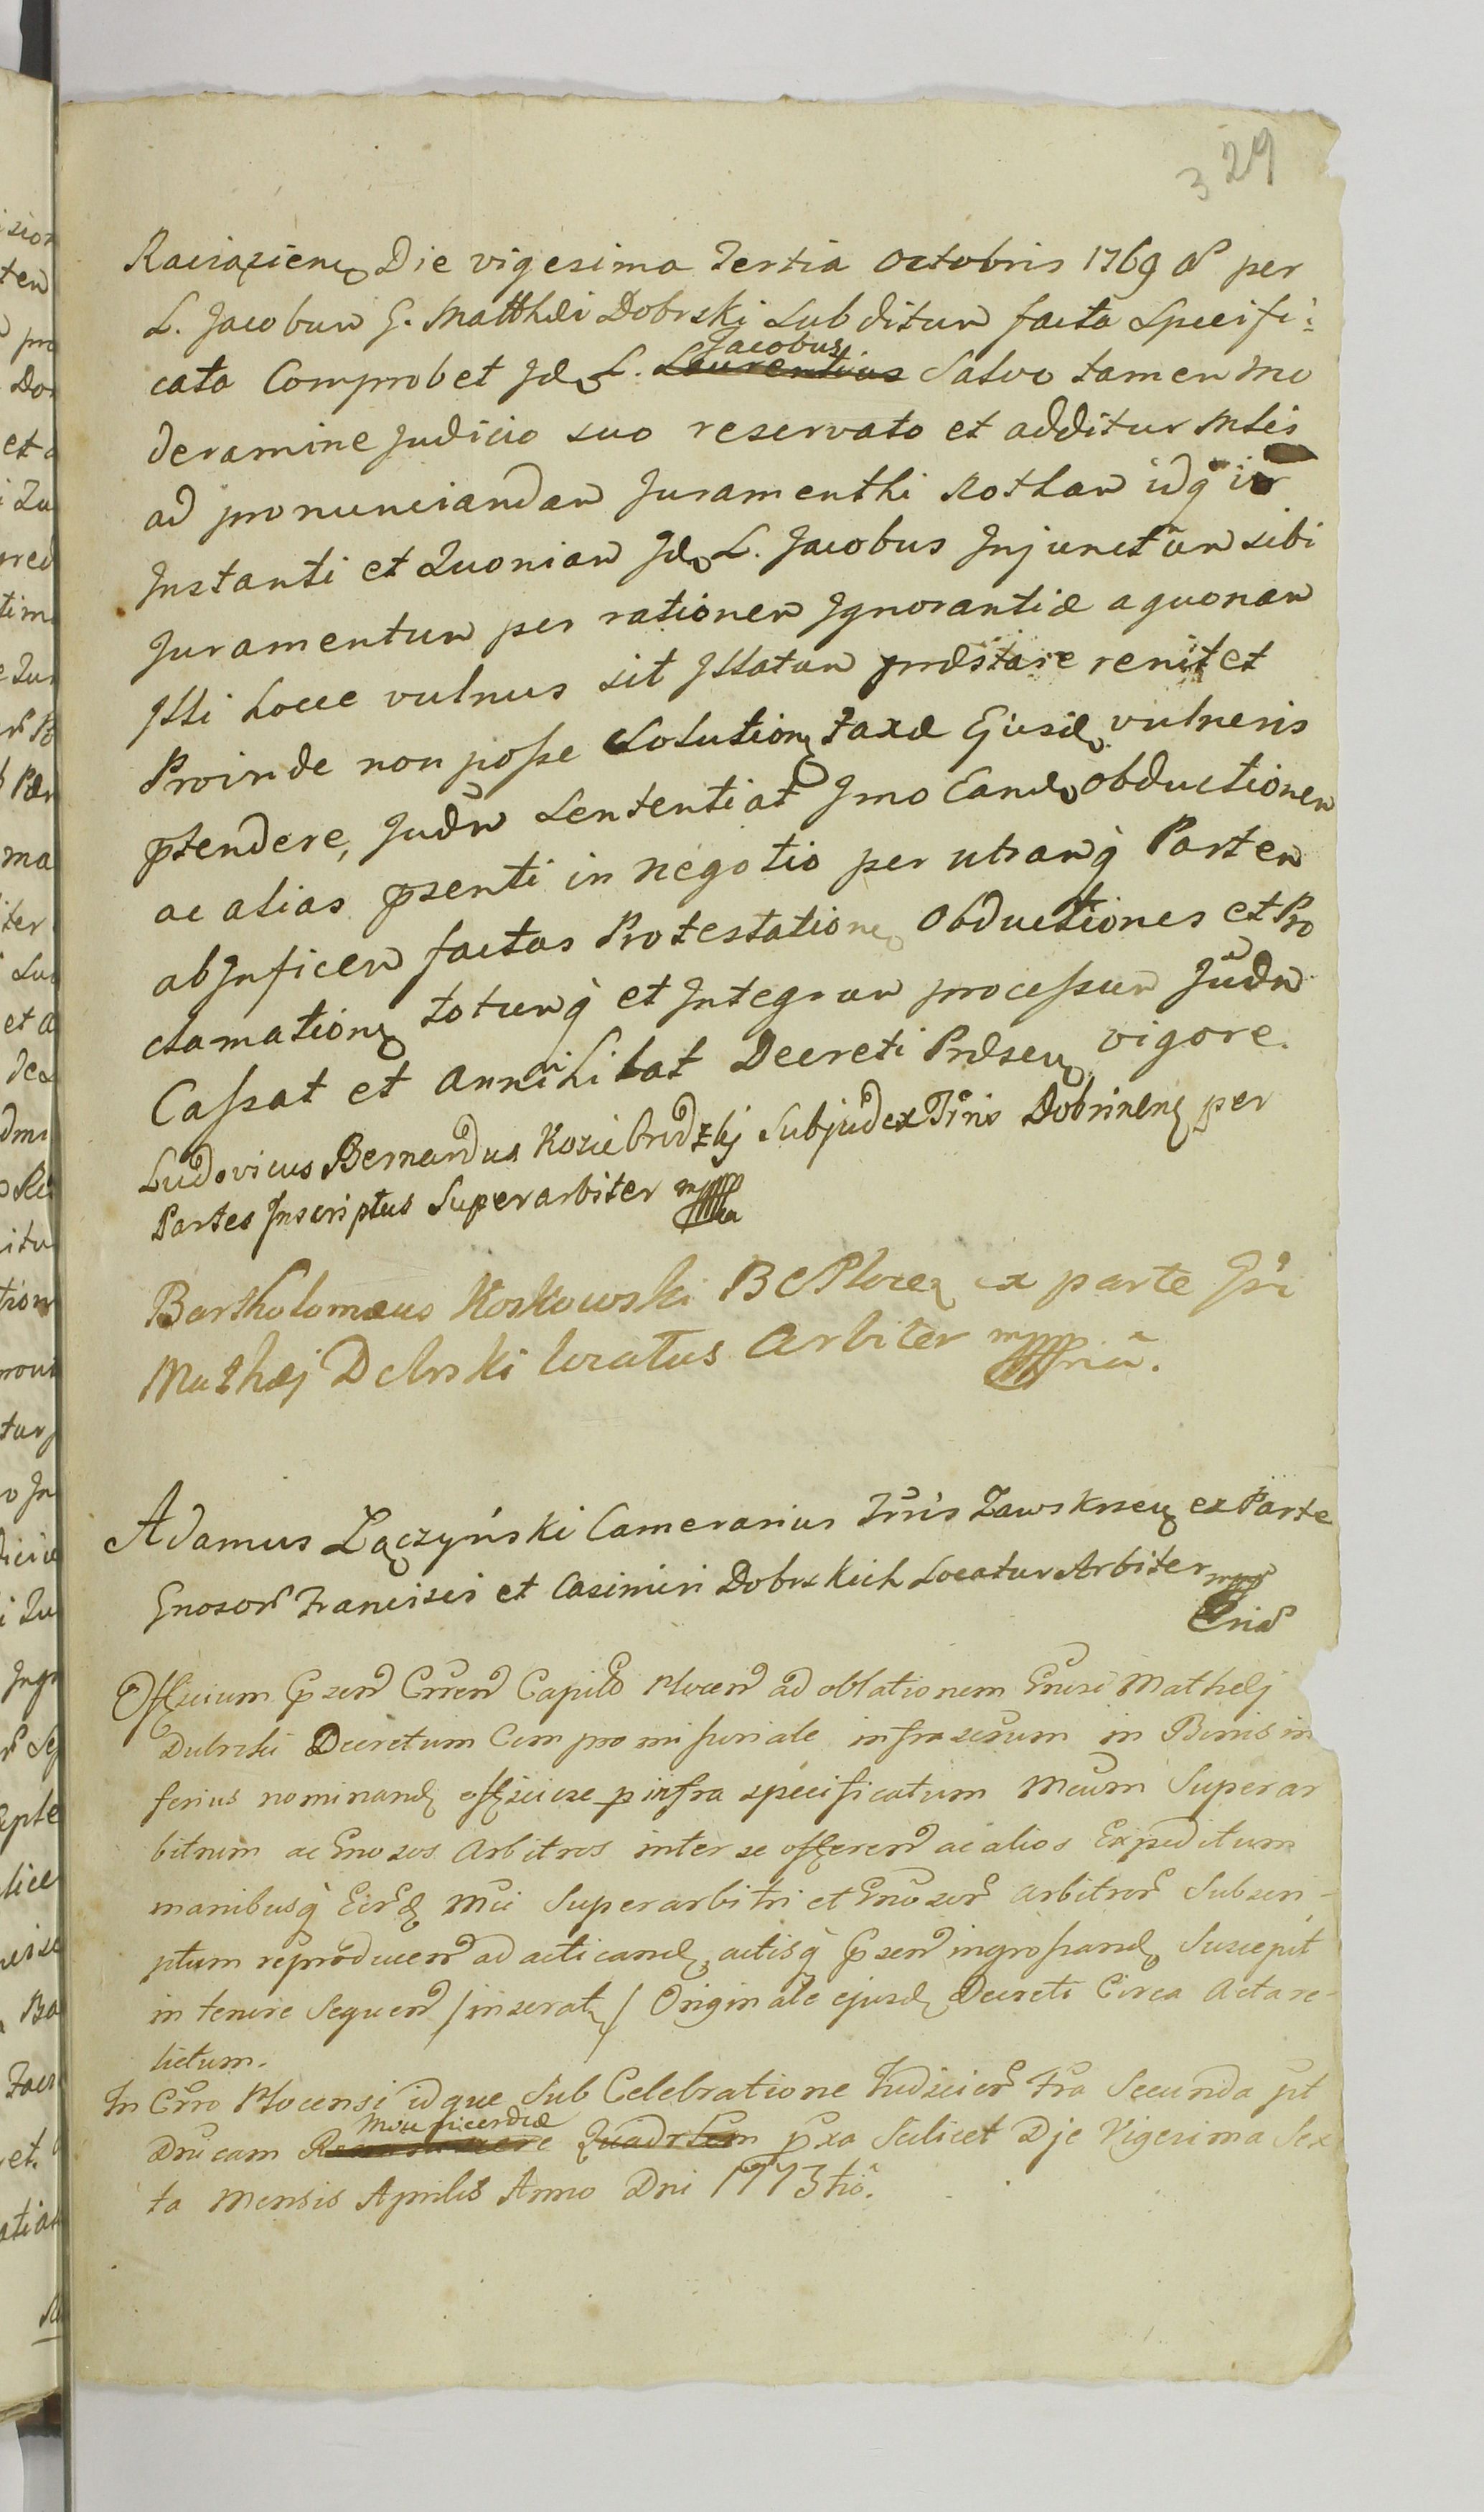 329
Raciązien Die vigesima Tertia Octobris 1769 per
L. Jacobum G. Matthæi Dobrski Subditum facta Specifi:
cata Comprobet Id L. Laurentius Jacobus Salvo tamen mo
deramine Judicio suo reservato et additur Mlis
ad pronunciandam Juramenthi Rotham idq̀ in
Instanti et Quoniam Id L. Jacobus Injunctum sibi
Juramentum per rationem Ignorantiæ a quonam
Illi hocce vulnus sit Illatum præstare renitet
Proinde non posse Solution taxæ Ejusd vulneris
ptendere, Judm Sententiat Imo Eand obductionem
ac alias psenti in negotio per utramq̀ Partem
ab Inficem factas Protestatione Obductiones et Pro
clamation totumq̀ et Integrum processum Judm
Cassat et Annihilat Decreti Præsen vigore.
Ludovicus Bernardus Koziebrodzkj Subjudex Trris Dobrinen per
Partes Inscriptus Superarbiter mppa
Bartholomæus Koskowski B C Plocen ex parte Gsi
Mathæj Dobrski locatus Arbiter mppria.
Adamus Łączyński Camerarius Trris Zawskrzen ex Parte
Gnosor Francisci et Casimiri Dobrskich Locatus Arbiter mpp
ria
Officium psen Crren Capitl Plocen ad oblationem Gnusi Mathæj
Dobrski Decretum Compromissoriale infrascrum in Binis in
ferius nominand officiose p infra specificatum Mcum Superar
bitrum ac Gnosos Arbitros inter se offeren ac alios Expeditum
manibusq̀ Eord Mci Superarbitri et Gnosor Arbitror Subscri-
ptum reproducen ad acticand, actisq̀ psen ingrossand Suscepit
in tenore Sequen /inserat/ Originale ejusd Decreti Circa Acta re-
lictum.
In Crro Plocensi idque Sub Celebratione Judicior Fra Secunda pt
Dnicam Misericordiæ Quadrlem pxa Scilicet Dje Vigesima Sex
ta Mensis Aprilis Anno Dni 1773 tio.